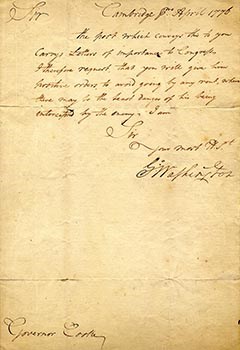 Sir
Cambridge 8th April 1776
the post which conveys this to you
Carrys Letters of importance to Congress
I therefore request, that you will give him
positive orders to avoid going by any rout, where
there may be the least danger of his being
intercepted by the enemy. I am
Sir
Your most H. St
Go Washington
Governor Cooke